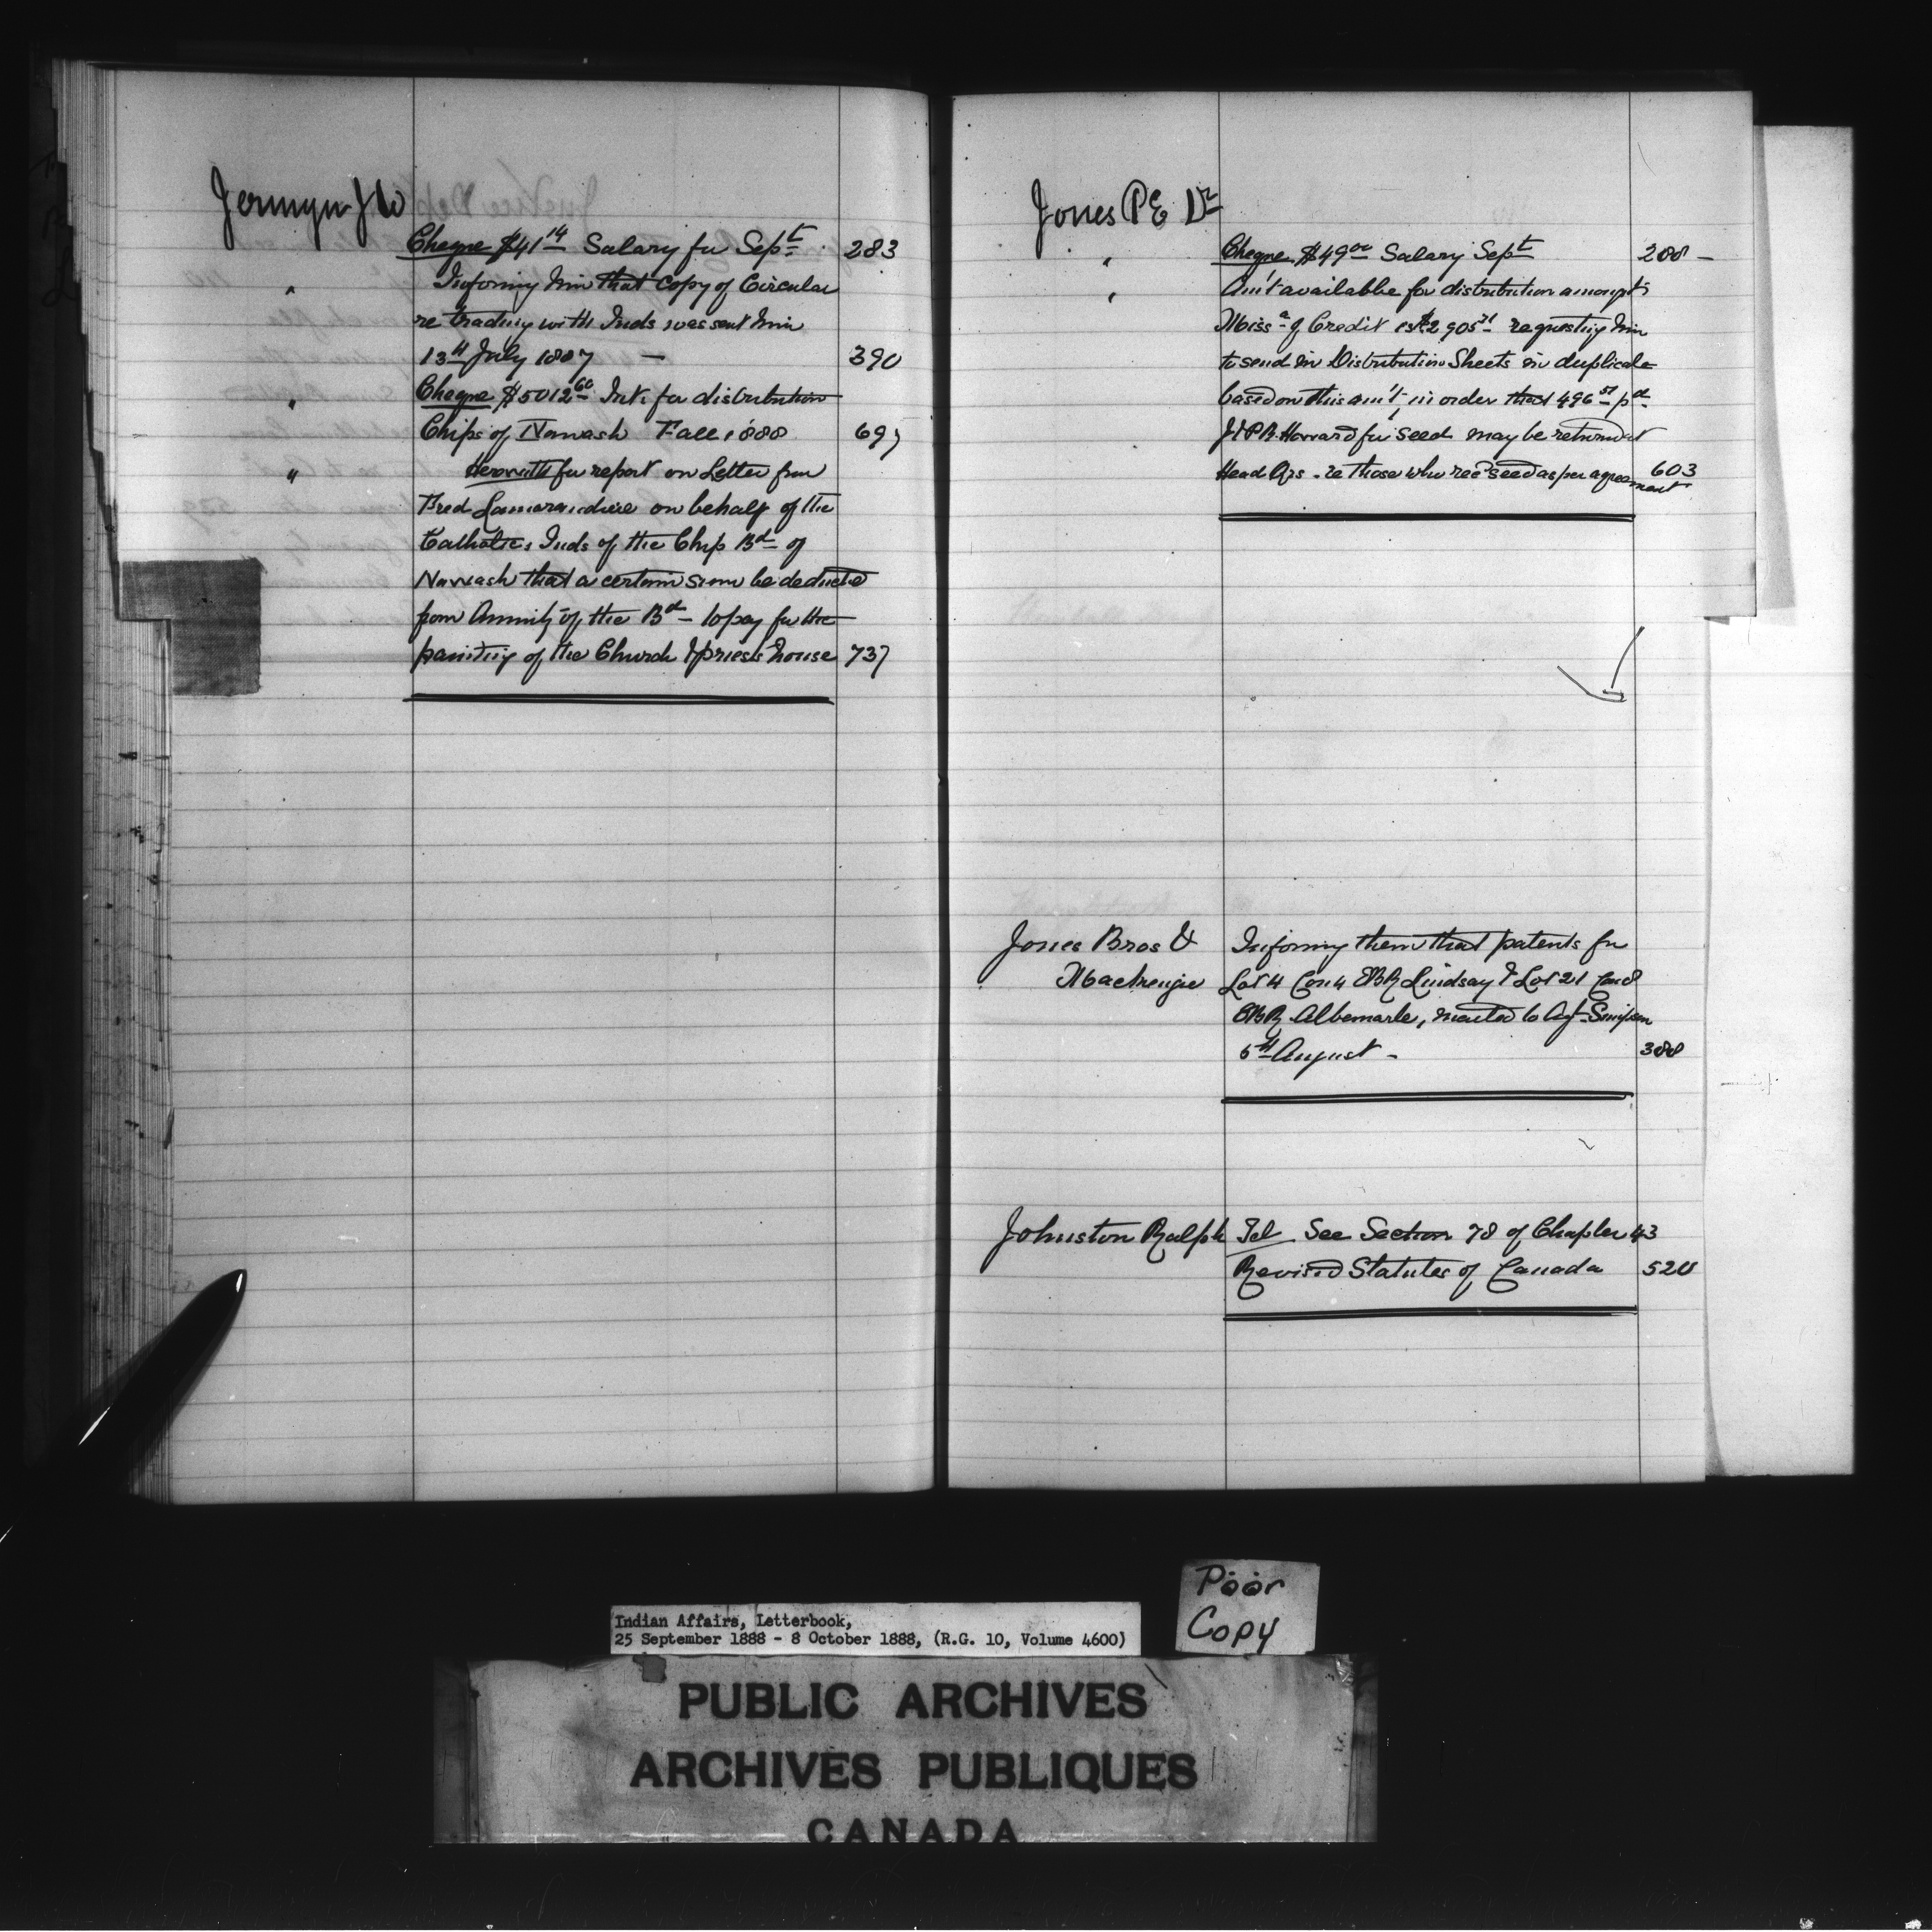 Jermyn J W
Cheque $41 14 Salary for Sept. 283
" Informing him that copy of Circular
re trading with Inds was sent him
13th July 1887 — 390
" Cheque $5012 60 Int. for distribution
Chips of Nawash Fall 1888 697
" Herewith for report on Letter from
Fred Lamorandiere on behalf of the
Catholics Inds of the Chip Bd of
Nawash that a certain sum be deducted
from Annuity of the Bd — to pay for the
painting of the Church & priests house 737
Jones P E Dr
" Cheque $49 00 Salary Sept 288 —
" Am't available for distribution amongst
Miss a of Credit is $2905 71 requesting him
to send in Distribution Sheets in duplicate
based on this am't, in order that 496 51 pd
J & P R Howard for seed may be returned
Head Qrs - re those who recd seed as per agreement 603
Jones Bros & Informing them that patents for
Mackenzie Lot 4 Con 4 EBR Lindsay & Lot 21 Con 8
EBR Albemarle, mailed to Agt Simpson
6th August - 388
Johnston Ralph Tel See Section 78 of Chapter 43
Revised Statutes of Canada 528
Poor
Copy
Indian Affairs, Letterbook,
25 September 1888 - 8 October 1888, (R.G. 10, Volume 4600)
PUBLIC ARCHIVES
ARCHIVES PUBLIQUES
CANADA